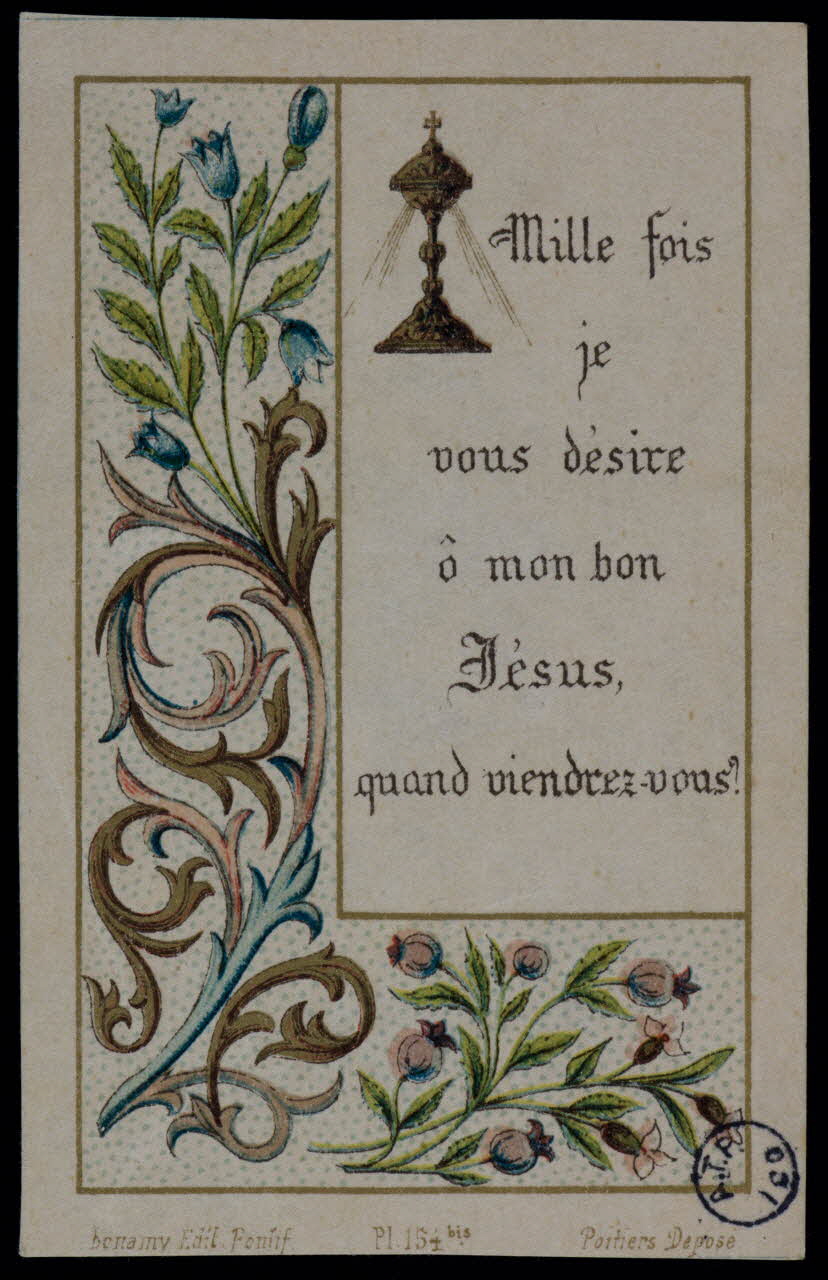 Mille fois
je
vous désire
ô mon bon
Jésus,
quand viendrez-vous?
bonamy Edit. Pontif. Pl. 154 bis Poitiers Déposé
A.T.P. 951